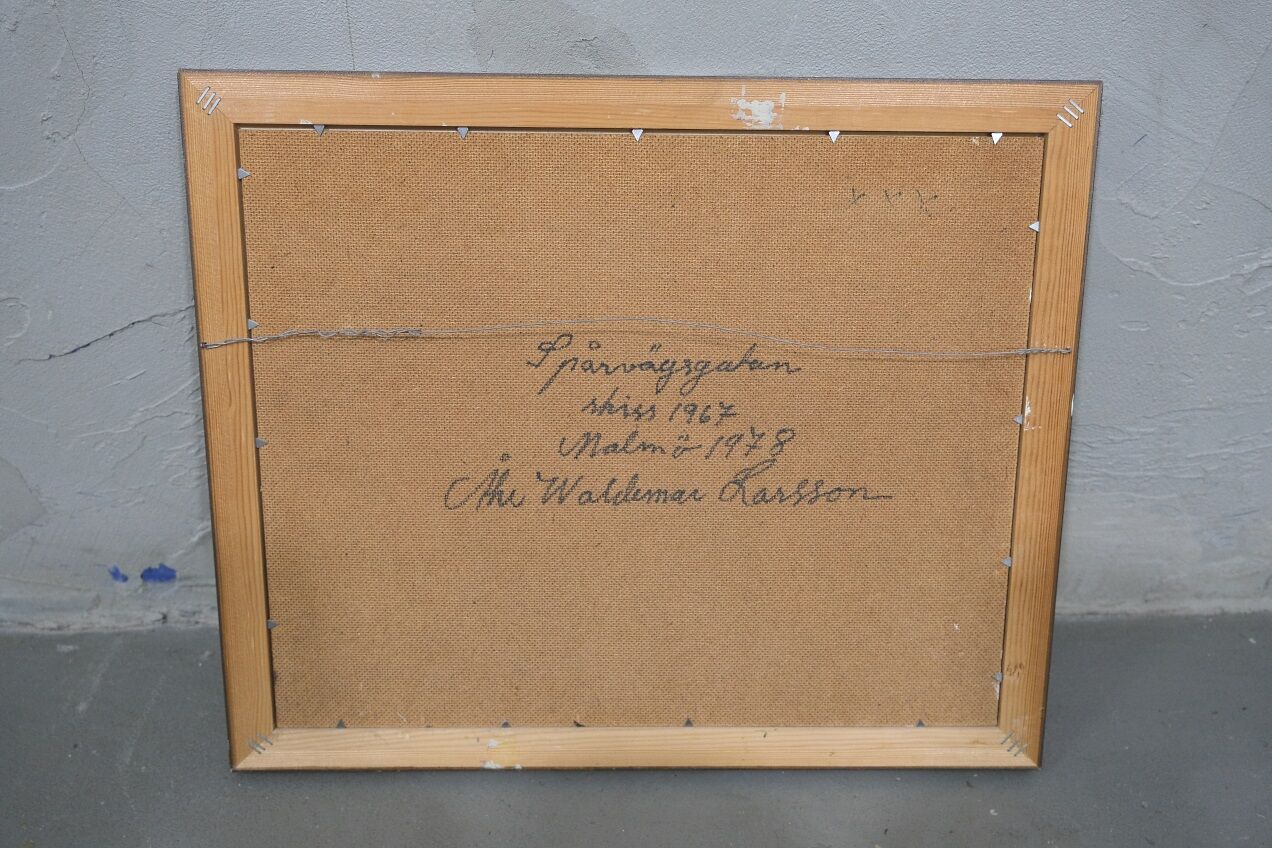 Spårvägsgatan
skiss 1967
Malmö 1978
Åke Waldemar Larsson